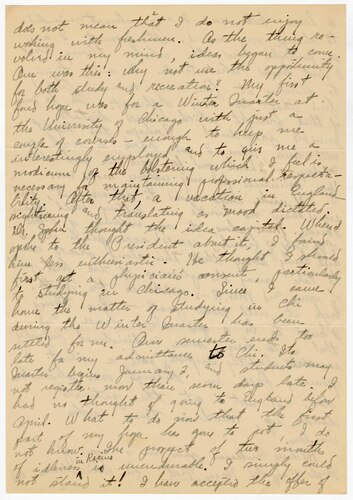 does not mean that I do not enjoy
working with freshmen. As the thing re-
volved in my mind, ideas began to come.
One was this: why not use this opportunity
for both study and recreation? My first
fond hope was for a Winter Quarter at
the University of Chicago with just a
couple of courses - enough to keep me
interestingly employed and to give me a
modicum of the which I feel is
necessary for maintaining professional respecta-
bility. After that a vacation in England
and translating as mood dictated.
thought the idea capital. When I
spoke to the President about it, I found
him less enthusiastic. He thought I should
first get a physician's consent, particularly
to studying in Chicago. Since I came
home the matter of studying in Chi
during the Winter Quarter has been
settled for me. Our semester ends too
late for my admittance to Chi. Its
Quarter begins January 2, and students may
not register more than seven days late. I
had no thought of going to England before
April. What to do now that the first
part of my hope has gone to pot I do
not know. The prospect of two months
of idleness in Racine is unendurable. I simply could
not stand it! I have accepted the offer of